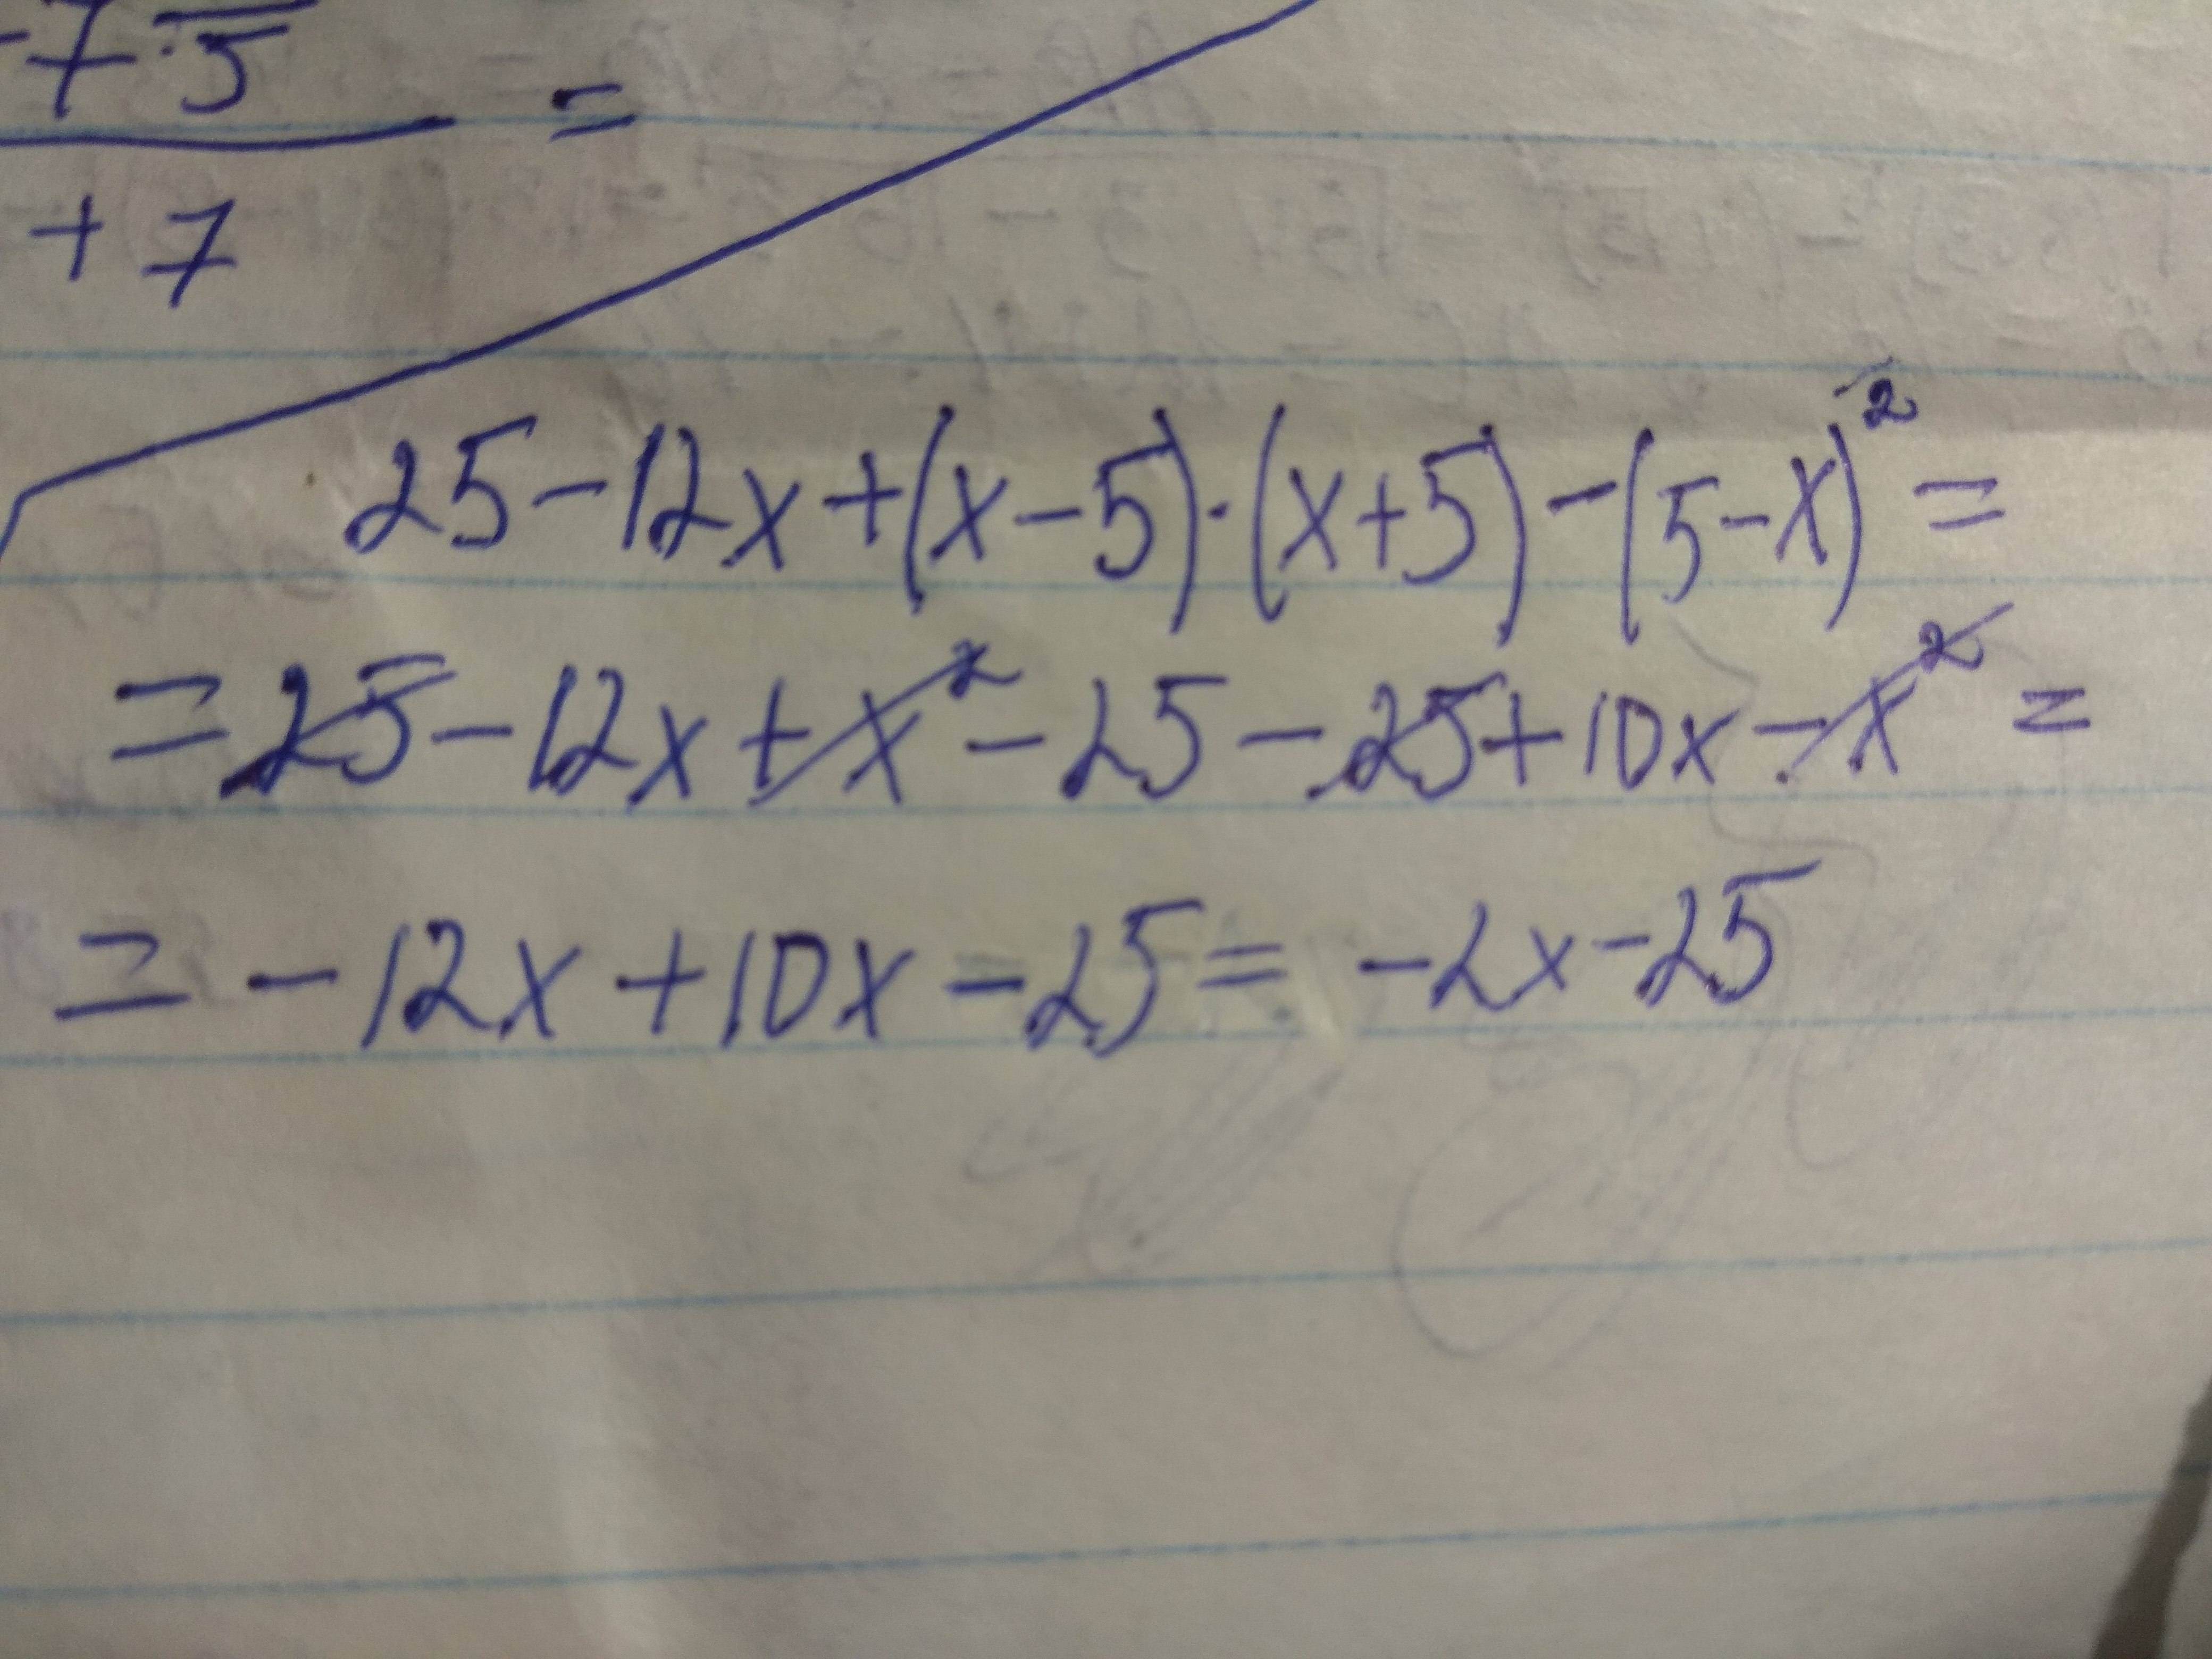 -7·5 =
+ 7
25-12x+(x-5)·(x+5)-(5-x)²=
=25-12x+x²-25-25+10x-x²=
=-12x+10x-25=-2x-25